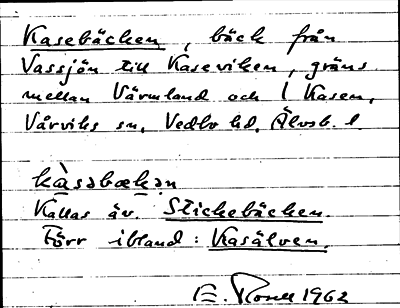 Kasebäcken, bäck från
Vassjön till Kaseviken, gräns
mellan Värmland och l Kasen,
Vårviks sn, Vedbo hd, Älvsb. l.
kàsəbækən
Kallas äv. Stickebäcken.
Förr ibland: Kasälven.
E. 1962